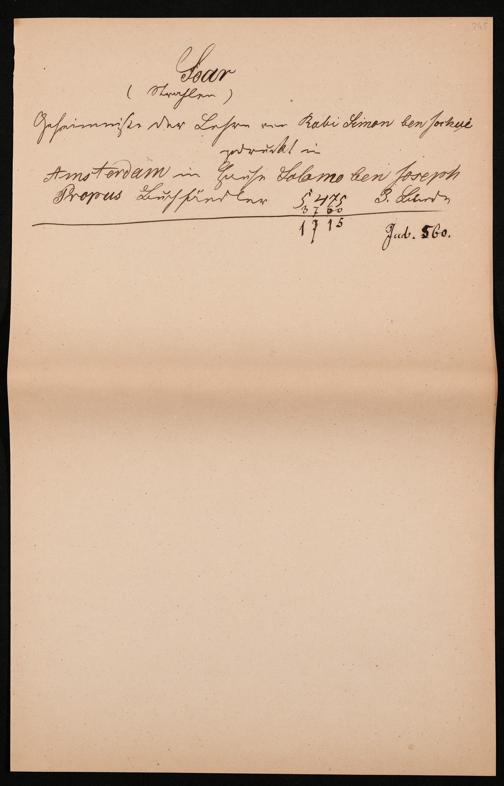 Soar
( Strahlen )
Geheimnisse der Lehre von Rabi Simon ben Jochai
gedruckt in
Amsterdam im Hause Salomo ben Joseph
Propus Buchhändler 5475 3.
3760
1715 Jud. 560.